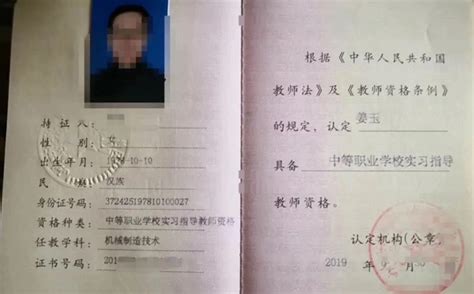 持 证 人
性 别 女
出生年月 1978-10-10
民 族 汉族
身份证号码: 372425197810100027
资格种类: 中等职业学校实习指导教师资格
任教学科: 机械制造技术
证书号码: 201
根据《中华人民共和国
教师法》及《教师资格条例》
的规定，认定 姜玉
具备 中等职业学校实习指导
教师资格。
认定机构(公章)
2019 年 月